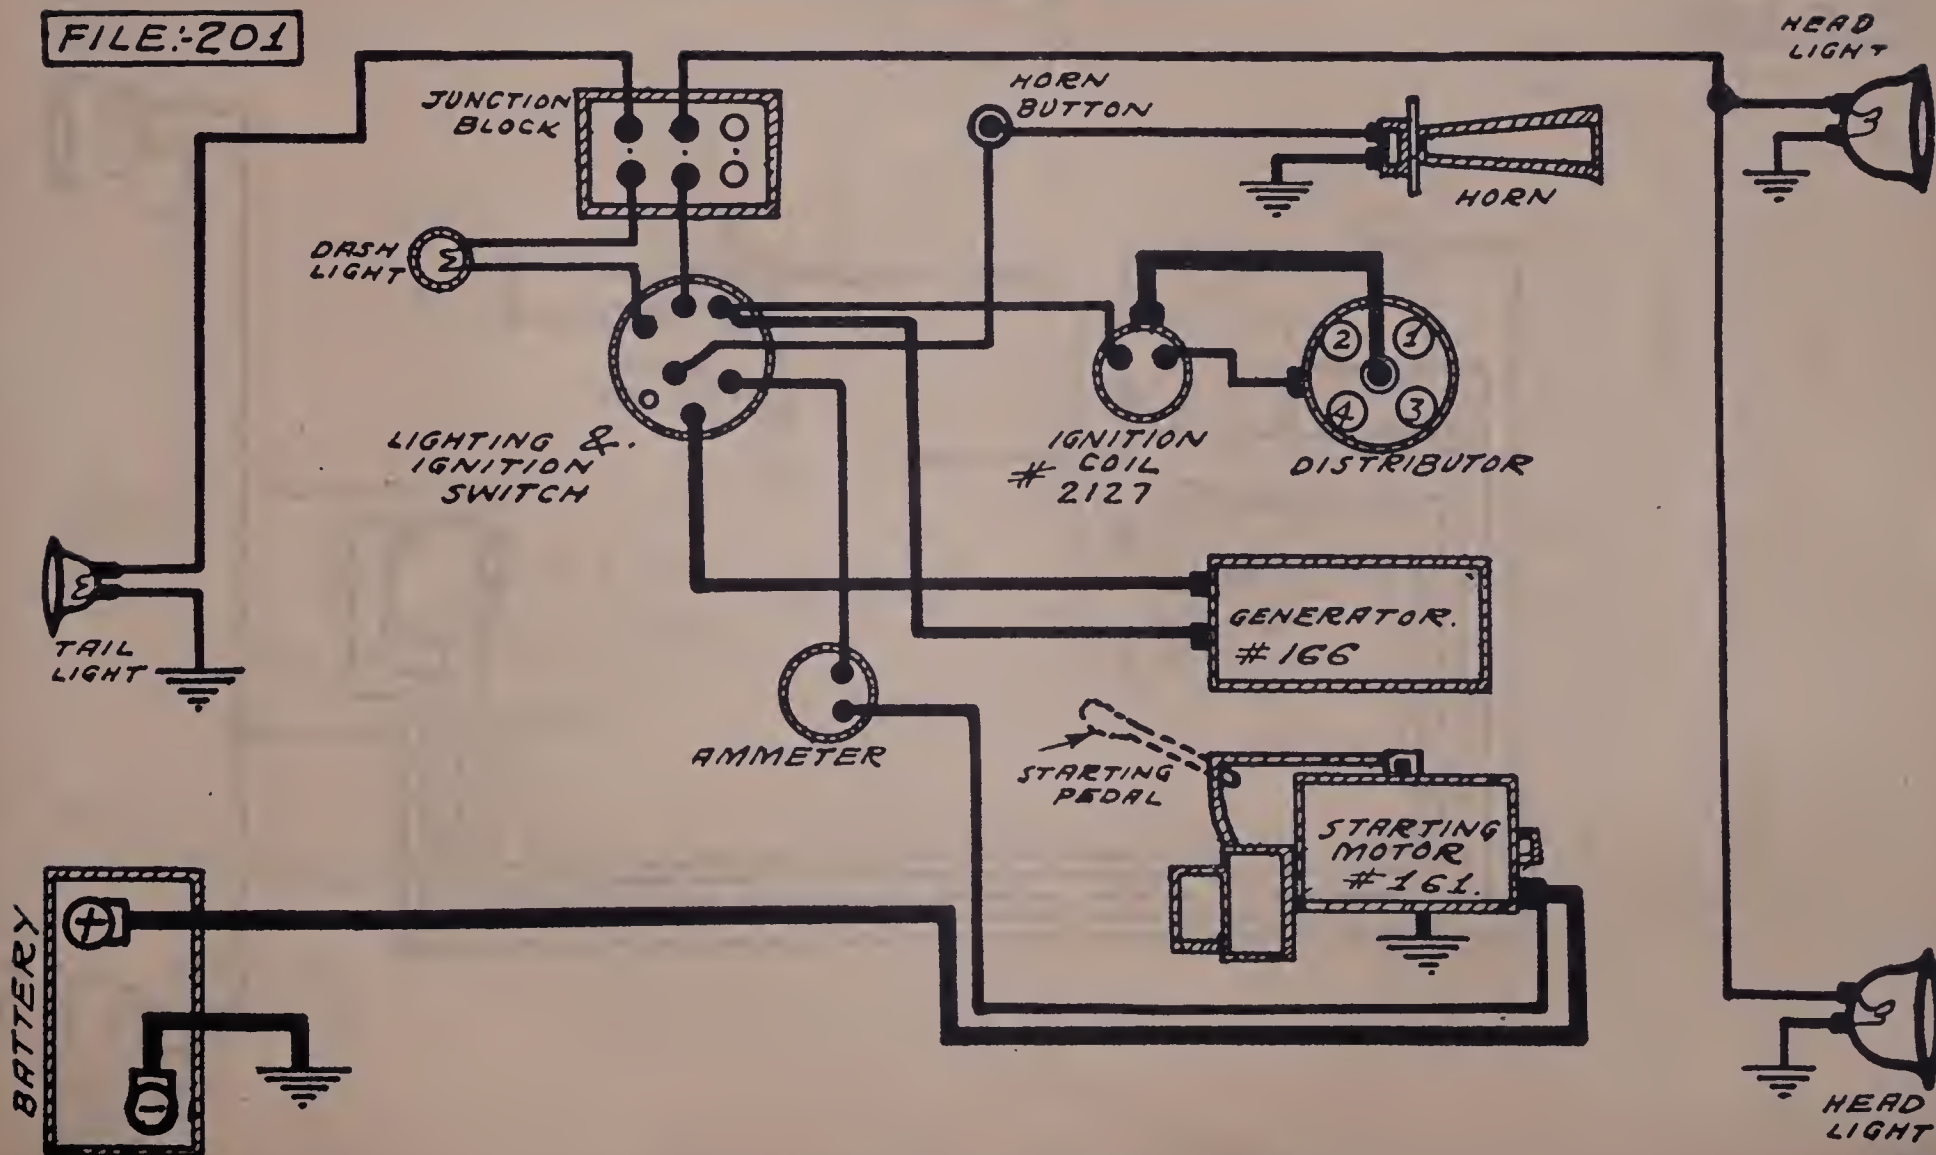 FILE:-201
HEAD
LIGHT
JUNCTION
BLOCK
HORN
BUTTON
HORN
DASH
LIGHT
2
1
4
3
LIGHTING &.
IGNITION
SWITCH
IGNITION
COIL
# 2127
DISTRIBUTOR
TAIL
LIGHT
GENERATOR.
# 166
AMMETER
STARTING
PEDAL
STARTING
MOTOR
# 161.
BATTERY
+
-
HEAD
LIGHT